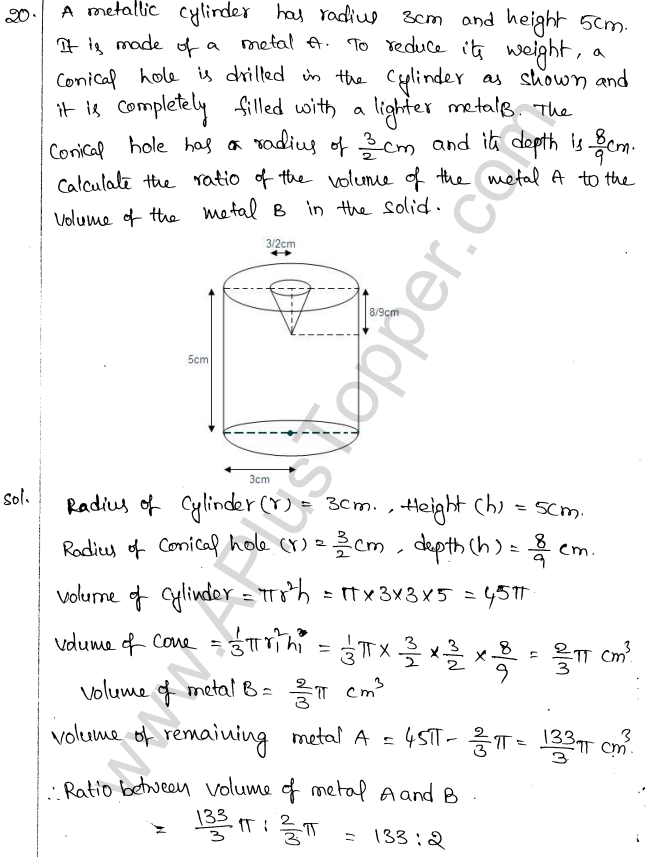 20. A metallic cylinder has radius 3cm and height 5cm.
It is made of a metal A. To reduce its weight, a
Conical hole is drilled in the cylinder as shown and
it is completely filled with a lighter metal B. The
Conical hole has a radius of 3/2 cm and its depth is 8/9 cm.
Calculate the ratio of the volume of the metal A to the
Volume of the metal B in the solid.
3/2cm
8/9cm
5cm
3cm
Sol. Radius of cylinder (r) = 3cm. , Height (h) = 5cm.
Radius of Conical hole (r) = 3/2 cm , depth (h) = 8/9 cm.
Volume of cylinder = πr²h = π×3×3×5 = 45π
Volume of Cone = 1/3 πr₁²h₁ = 1/3 π × 3/2 × 3/2 × 8/9 = 2/3 π cm³
Volume of metal B = 2/3 π cm³
Volume of remaining metal A = 45π - 2/3 π = 133/3 π cm³
∴ Ratio between Volume of metal A and B.
= 133/3 π : 2/3 π = 133 : 2
www.APlusTopper.com